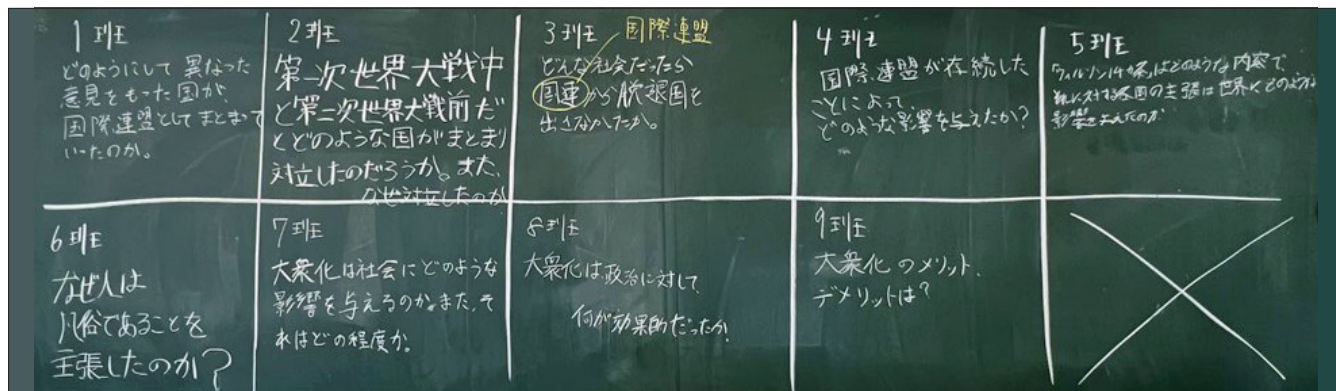 1班
どのようにして異なった
意見をもった国が、
国際連盟としてまとまって
いったのか。
2班
第一次世界大戦中
と第二次世界大戦前だ
とどのような国がまとまり
対立したのだろうか。また、
なぜ対立したのか
3班
国際連盟
どんな社会だったら
国連から脱張国を
出さなかったか。
4班
国際連盟が存続した
ことによって、
どのような影響を与えたか?
5班
「ウィルソン14か条」はどのような内容で、
それに対する各国の主張は世界にどのような
影響を与えたのか
6班
なぜ人は
であることを
主張したのか?
7班
大衆化は社会にどのような
影響を与えるのか。また、そ
れはどの程度か。
8班
大衆化は政治に対して、
何が効果的だったか
9班
大衆化のメリット、
デメリットは?